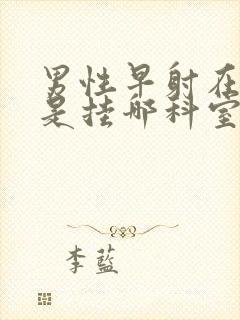 男性早射在
是挂哪科室
李蓝